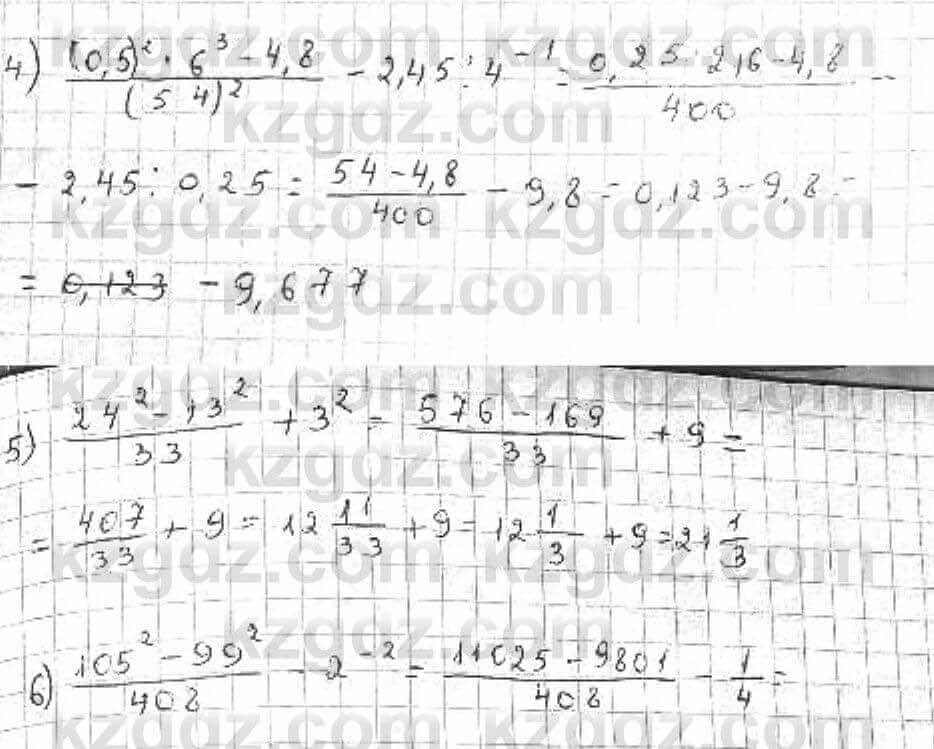 4) (0,5)² · 6³ - 4,8 / (5 4)² - 2,45 : 4⁻¹ = 0,25 · 216 - 4,8 / 400 -
- 2,45 : 0,25 = 54 - 4,8 / 400 - 9,8 = 0,123 - 9,8 =
= 0,123 - 9,677
5) 24² - 13² / 33 + 3² = 576 - 169 / 33 + 9 =
= 407 / 33 + 9 = 12 11/33 + 9 = 12 1/3 + 9 = 21 1/3
6) 105² - 99² / 408 - 2⁻² = 11025 - 9801 / 408 - 1/4 =
kzgdz.com